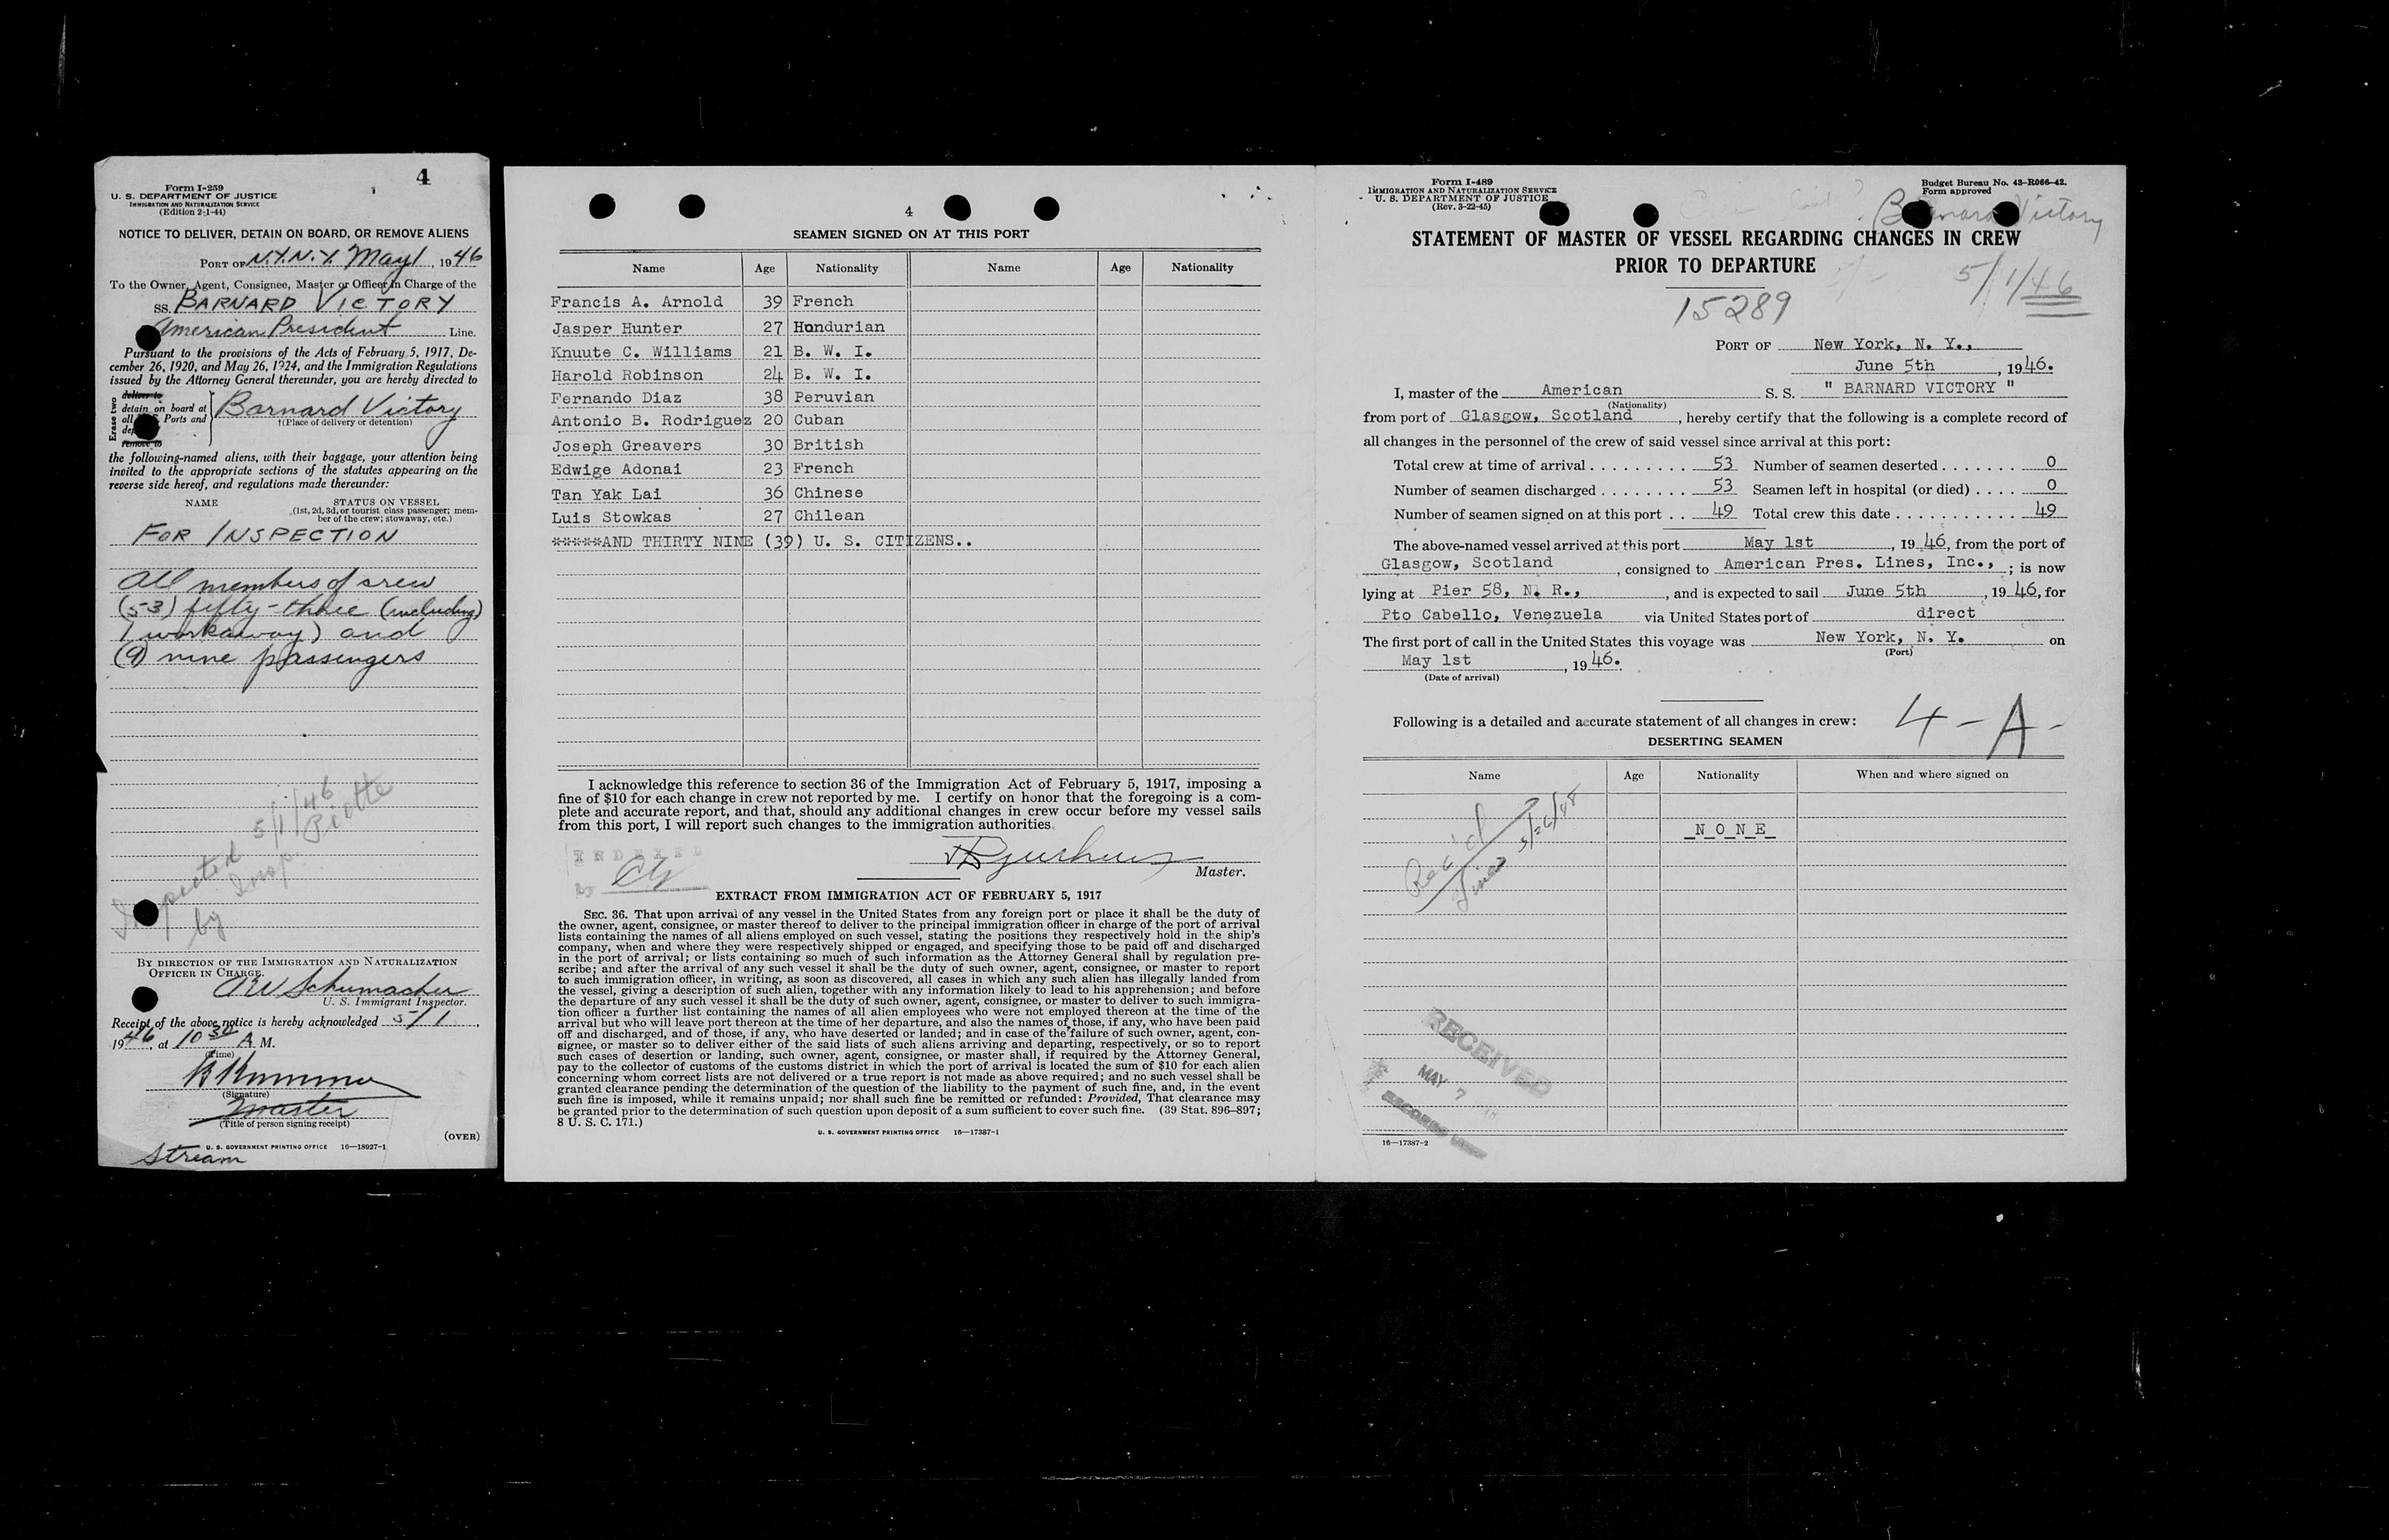 4
Form I-259
U. S. DEPARTMENT OF JUSTICE
IMMIGRATION AND NATURALIZATION SERVICE
(Edition 2-1-44)
NOTICE TO DELIVER, DETAIN ON BOARD, OR REMOVE ALIENS
PORT OF N.Y.N.Y. May 1, 1946
To the Owner, Agent, Consignee, Master or Officer in Charge of the
SS. BARNARD VICTORY
American President Line.
Pursuant to the provisions of the Acts of February 5, 1917, De-
cember 26, 1920, and May 26, 1924, and the Immigration Regulations
issued by the Attorney General thereunder, you are hereby directed to
Erase two
deliver to
detain on board at
all U. S. Ports and
remove to
Barnard Victory
†(Place of delivery or detention)
the following-named aliens, with their baggage, your attention being
invited to the appropriate sections of the statutes appearing on the
reverse side hereof, and regulations made thereunder:
NAME STATUS ON VESSEL
(1st, 2d, 3d, or tourist class passenger; mem-
ber of the crew; stowaway, etc.)
FOR INSPECTION
All members of crew
(53) fifty-three (including
1 workaway) and
(9) nine passengers
Inspected 5/1/46
by Insp. Piotte
BY DIRECTION OF THE IMMIGRATION AND NATURALIZATION
OFFICER IN CHARGE.
RW Schumacher
U. S. Immigrant Inspector.
Receipt of the above notice is hereby acknowledged 5/1,
1946, at 10 30 A M.
(Time)
(Signature)
Master
(Title of person signing receipt)
U. S. GOVERNMENT PRINTING OFFICE 16—18927-1
(OVER)
Stream
4
SEAMEN SIGNED ON AT THIS PORT
Name Age Nationality Name Age Nationality
Francis A. Arnold 39 French
Jasper Hunter 27 Hondurian
Knuute C. Williams 21 B. W. I.
Harold Robinson 24 B. W. I.
Fernando Diaz 38 Peruvian
Antonio B. Rodriguez 20 Cuban
Joseph Greavers 30 British
Edwige Adonai 23 French
Tan Yak Lai 36 Chinese
Luis Stowkas 27 Chilean
*****AND THIRTY NINE (39) U. S. CITIZENS..
I acknowledge this reference to section 36 of the Immigration Act of February 5, 1917, imposing a
fine of $10 for each change in crew not reported by me. I certify on honor that the foregoing is a com-
plete and accurate report, and that, should any additional changes in crew occur before my vessel sails
from this port, I will report such changes to the immigration authorities.
INDEXED
By
Master.
EXTRACT FROM IMMIGRATION ACT OF FEBRUARY 5, 1917
SEC. 36. That upon arrival of any vessel in the United States from any foreign port or place it shall be the duty of
the owner, agent, consignee, or master thereof to deliver to the principal immigration officer in charge of the port of arrival
lists containing the names of all aliens employed on such vessel, stating the positions they respectively hold in the ship's
company, when and where they were respectively shipped or engaged, and specifying those to be paid off and discharged
in the port of arrival; or lists containing so much of such information as the Attorney General shall by regulation pre-
scribe; and after the arrival of any such vessel it shall be the duty of such owner, agent, consignee, or master to report
to such immigration officer, in writing, as soon as discovered, all cases in which any such alien has illegally landed from
the vessel, giving a description of such alien, together with any information likely to lead to his apprehension; and before
the departure of any such vessel it shall be the duty of such owner, agent, consignee, or master to deliver to such immigra-
tion officer a further list containing the names of all alien employees who were not employed thereon at the time of the
arrival but who will leave port thereon at the time of her departure, and also the names of those, if any, who have been paid
off and discharged, and of those, if any, who have deserted or landed; and in case of the failure of such owner, agent, con-
signee, or master so to deliver either of the said lists of such aliens arriving and departing, respectively, or so to report
such cases of desertion or landing, such owner, agent, consignee, or master shall, if required by the Attorney General,
pay to the collector of customs of the customs district in which the port of arrival is located the sum of $10 for each alien
concerning whom correct lists are not delivered or a true report is not made as above required; and no such vessel shall be
granted clearance pending the determination of the question of the liability to the payment of such fine, and, in the event
such fine is imposed, while it remains unpaid; nor shall such fine be remitted or refunded: Provided, That clearance may
be granted prior to the determination of such question upon deposit of a sum sufficient to cover such fine. (39 Stat. 896–897;
8 U. S. C. 171.)
U. S. GOVERNMENT PRINTING OFFICE 16—17387-1
Form I-489
IMMIGRATION AND NATURALIZATION SERVICE
U. S. DEPARTMENT OF JUSTICE
(Rev. 3-22-45)
Budget Bureau No. 43-R066-42.
Form approved
Barnard Victory
STATEMENT OF MASTER OF VESSEL REGARDING CHANGES IN CREW
PRIOR TO DEPARTURE
5/1/46
15289
PORT OF New York, N. Y.,
June 5th, 1946.
I, master of the American S. S. " BARNARD VICTORY "
(Nationality)
from port of Glasgow, Scotland, hereby certify that the following is a complete record of
all changes in the personnel of the crew of said vessel since arrival at this port:
Total crew at time of arrival . . . . . . . . . 53 Number of seamen deserted . . . . . . . 0
Number of seamen discharged . . . . . . . . 53 Seamen left in hospital (or died) . . . . 0
Number of seamen signed on at this port . . 49 Total crew this date . . . . . . . . . . . . 49
The above-named vessel arrived at this port May 1st, 1946, from the port of
Glasgow, Scotland, consigned to American Pres. Lines, Inc., ; is now
lying at Pier 58, N. R., , and is expected to sail June 5th, 1946, for
Pto Cabello, Venezuela via United States port of direct
The first port of call in the United States this voyage was New York, N. Y. on
(Port)
May 1st, 1946.
(Date of arrival)
Following is a detailed and accurate statement of all changes in crew:
4-A-
DESERTING SEAMEN
Name Age Nationality When and where signed on
N O N E
Rec'd
RECEIVED
MAY 7
16—17387-2